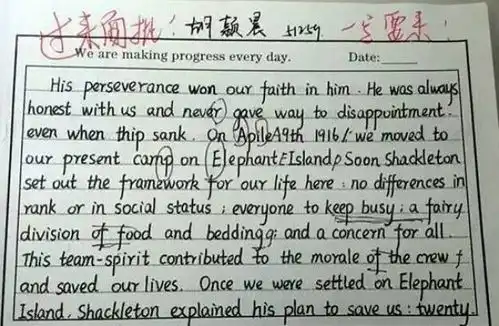 过来面批! 胡颖晨 51259 一定要来!
We are making progress every day. Date:
His perseverance won our faith in him. He was always
honest with us and never gave way to disappointment.
even when thip sank. On Aplie19th 1916, we moved to
our present camp on Elephant Island, Soon Shackleton
set out the framework for our life here: no differences in
rank or in social status; everyone to keep busy; a fairy
division of food and beddingg; and a concern for all.
This team-spirit contributed to the morale of the crew
and saved our lives. Once we were settled on Elephant
Island, Shackleton explained his plan to save us: twenty.